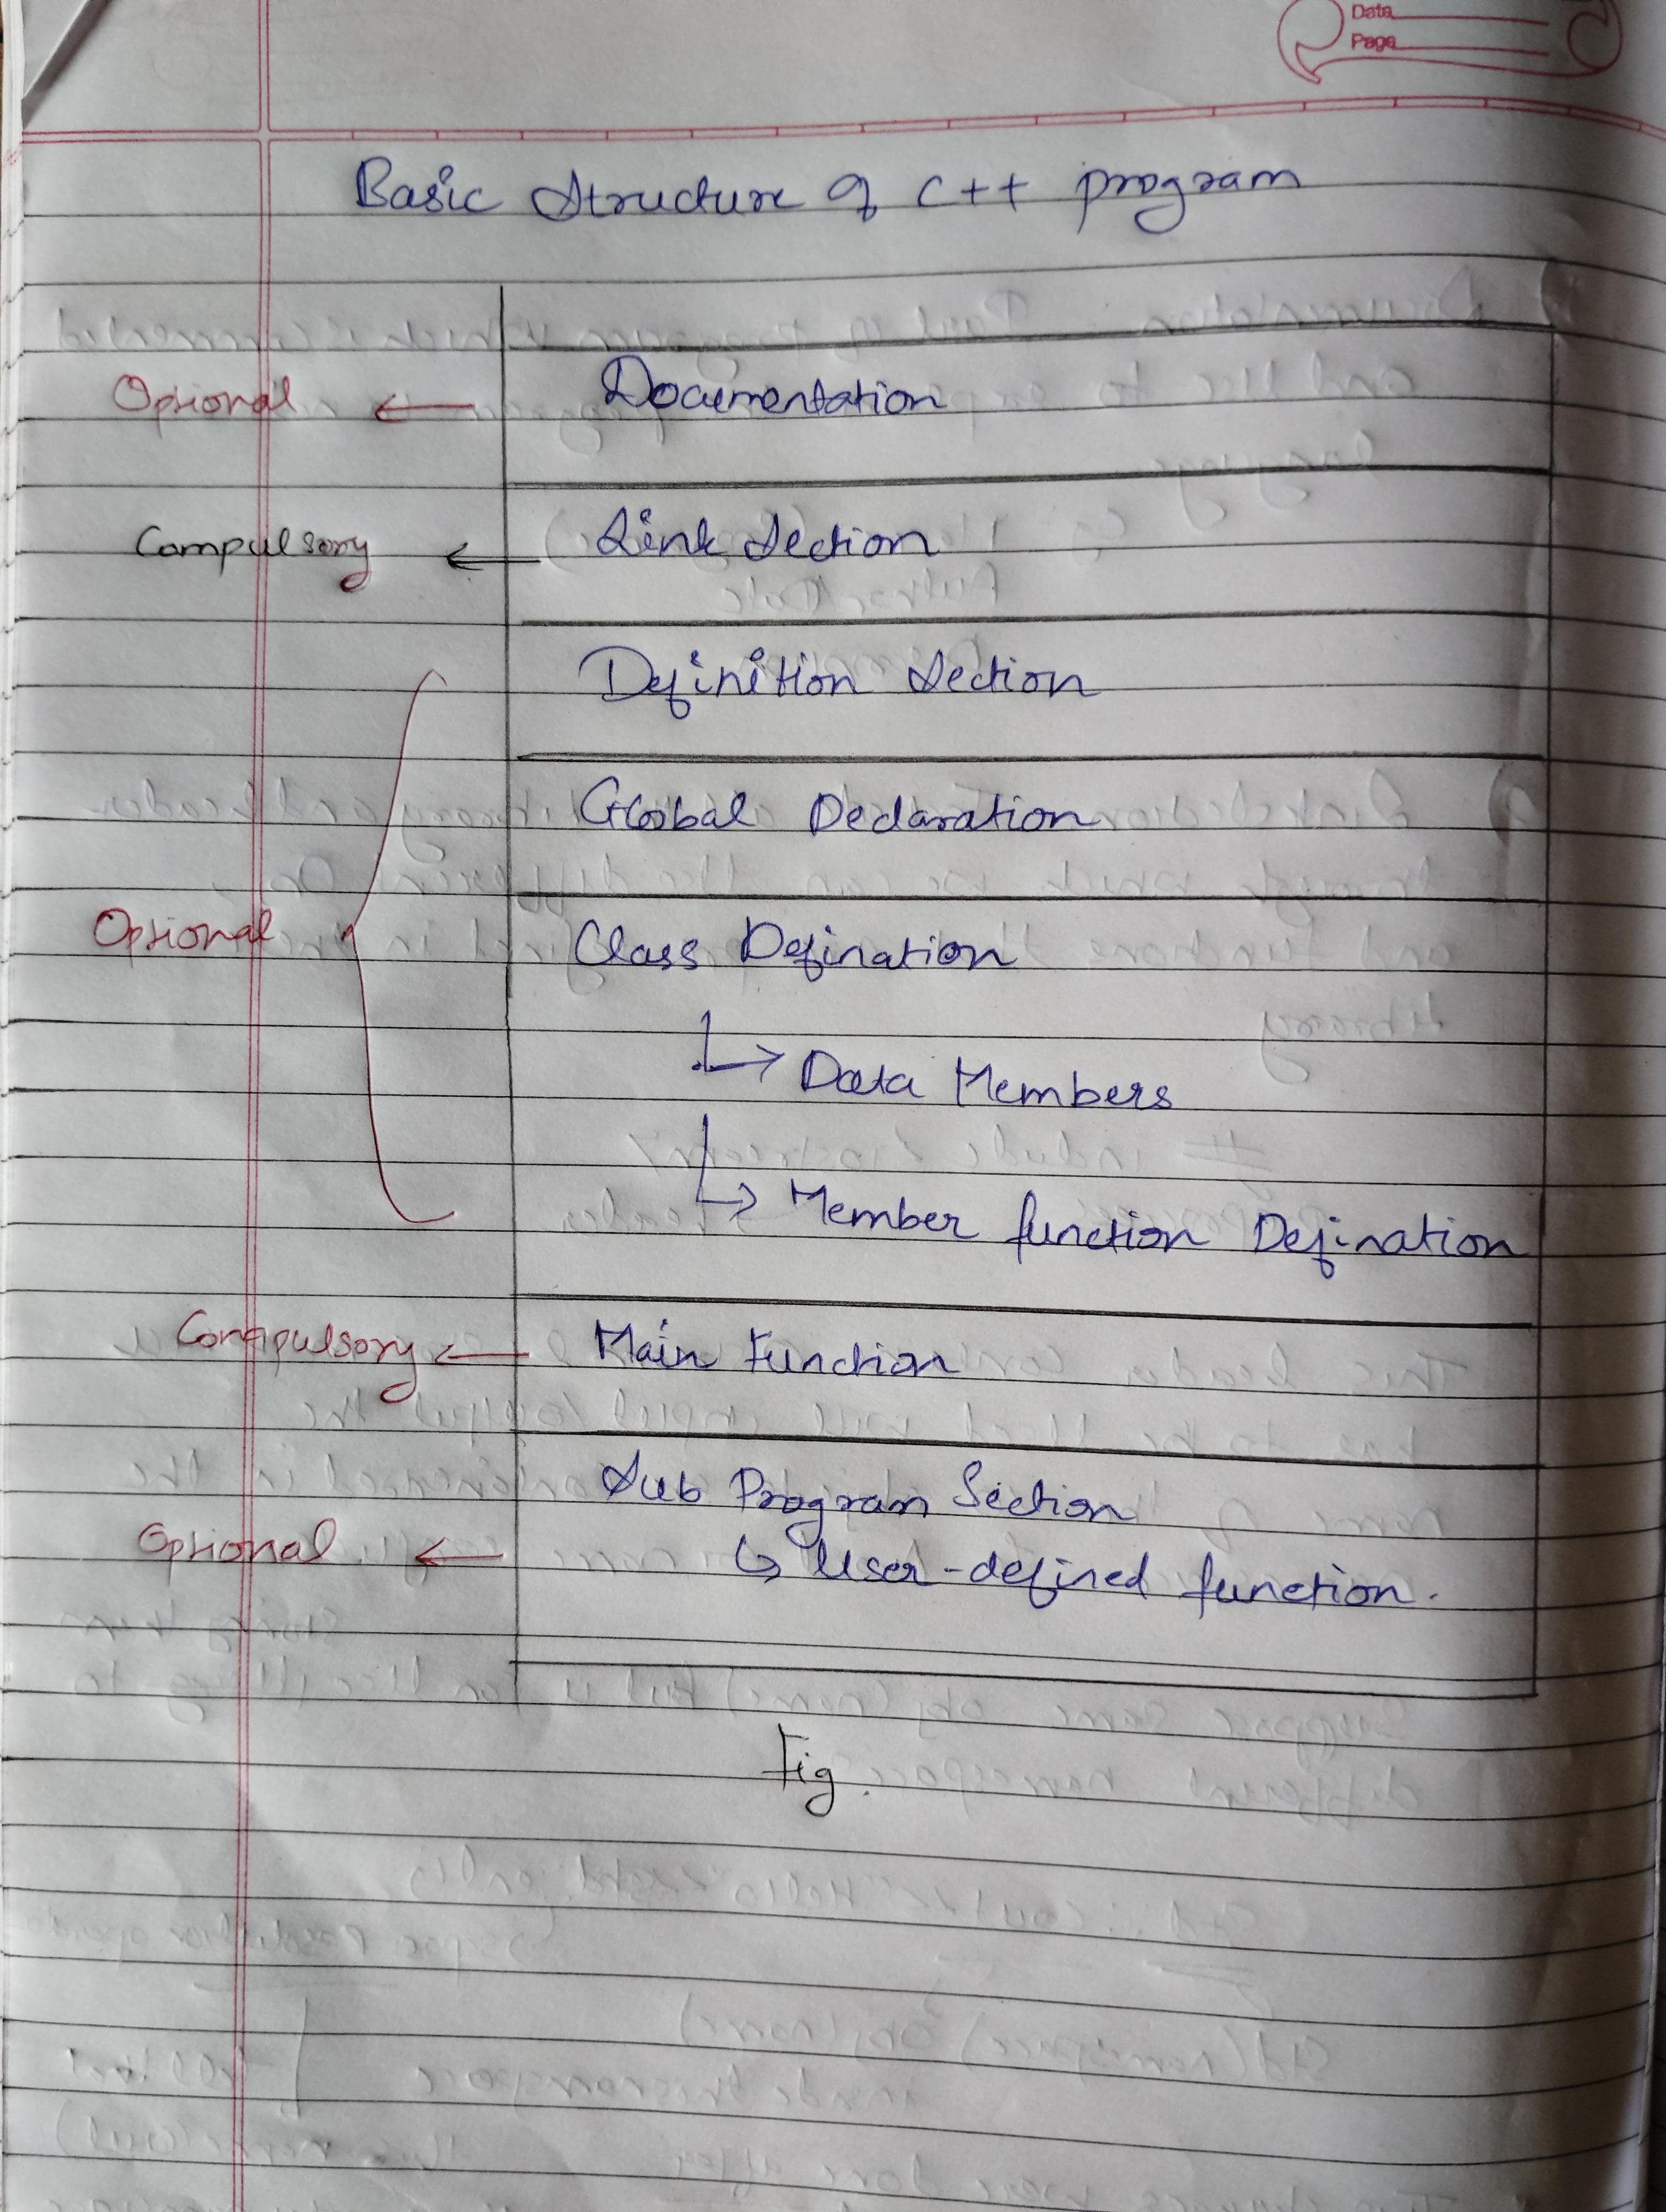 Data
Page
Basic Structure of C++ program
Optional ← Documentation
Compulsory ← Link Section
Definition Section
Global Declaration
Optional
Class Defination
↳ Data Members
↳ Member function Defination
Compulsory ← Main Function
Sub Program Section
Optional ← ↳ User-defined function.
Fig.